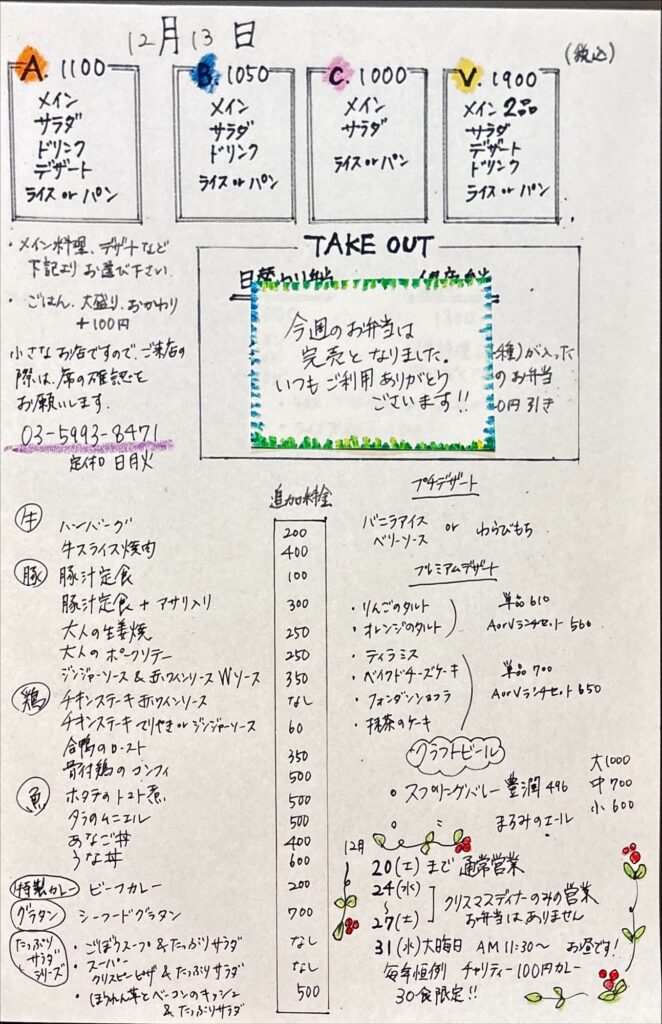 12月13日
(税込)
A. 1100
メイン
サラダ
ドリンク
デザート
ライス or パン
B. 1050
メイン
サラダ
ドリンク
ライス or パン
C. 1000
メイン
サラダ
ライス or パン
V. 1900
メイン 2品
サラダ
デザート
ドリンク
ライス or パン
・メイン料理、デザートなど
下記よりお選び下さい.
・ごはん、大盛り、おかわり
+100円
小さなお店ですので、ご来店の
際は、席の確認を
お願いします.
03-5993-8471
定休日 日月火
TAKE OUT
日替わり弁当
今週のお弁当は
完売となりました.
いつもご利用ありがとう
ございます!!
種)が入った
のお弁当
0円引き
追加料金
牛 ハンバーグ 200
牛スライス焼肉 400
豚 豚汁定食 100
豚汁定食 + アサリ入り 300
大人の生姜焼 250
大人のポークソテー 250
ジンジャーソース & 赤ワインソース Wソース 350
鶏 チキンステーキ 赤ワインソース なし
チキンステーキ てりやき or ジンジャーソース 60
合鴨のロースト 350
骨付鶏のコンフィ 500
魚 ホタテのトマト煮 500
タラのムニエル 500
あなご丼 400
うな丼 600
特製カレー ビーフカレー 200
グラタン シーフードグラタン 700
たっぷりサラダシリーズ
・ごぼうスープ & たっぷりサラダ なし
・スーパークリスピーピザ & たっぷりサラダ なし
・ほうれん草とベーコンのキッシュ
& たっぷりサラダ 500
プチデザート
バニラアイス
ベリーソース or わらびもち
プレミアムデザート
・りんごのタルト
・オレンジのタルト
単品 610
AorVランチセット 560
・ティラミス
・ベイクドチーズケーキ
・フォンダンショコラ
・抹茶のケーキ
単品 700
AorVランチセット 650
クラフトビール
・スプリングバレー 豊潤 496
・まろみのエール
大1000
中 700
小 600
12月
20(土)まで 通常営業
24(水)
~
27(土)
クリスマスディナーのみの営業
お弁当はありません
31(水)大晦日 AM 11:30~ お昼です!
毎年恒例 チャリティー100円カレー
30食限定!!